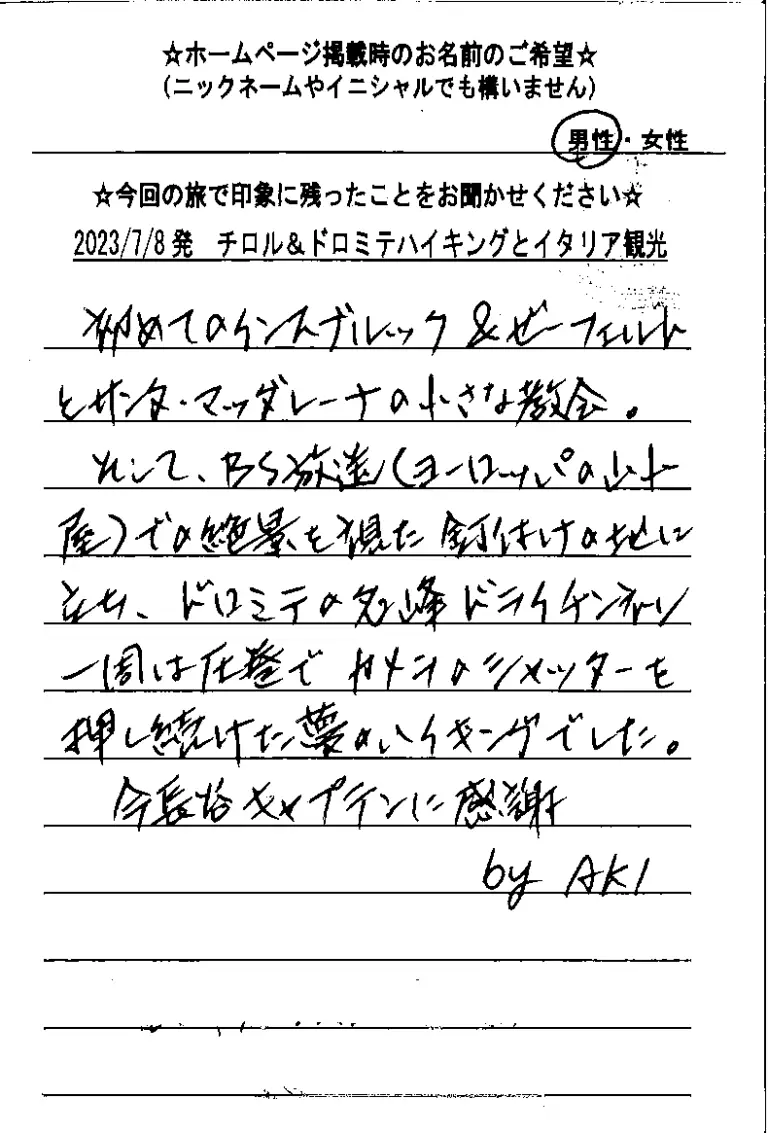 ☆ホームページ掲載時のお名前のご希望☆
(ニックネームやイニシャルでも構いません)
男性・女性
☆今回の旅で印象に残ったことをお聞かせください☆
2023/7/8発 チロル&ドロミテハイキングとイタリア観光
初めてのインスブルック&ゼーフェルト
とサンタ・マッダレーナの小さな教会。
そして、BS放送(ヨーロッパの山小
屋)での絶景を視た釘付けの地に
立ち、ドロミテの名峰ドライチンネン
一周は圧巻でカメラのシャッターを
押し続けた夢のハイキングでした。
今長谷キャプテンに感謝
by AKI